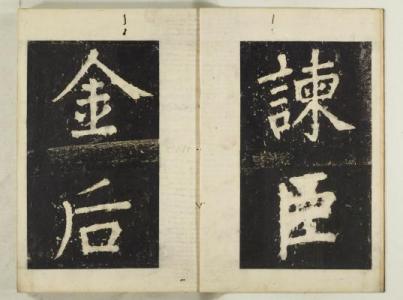 諫臣
金后